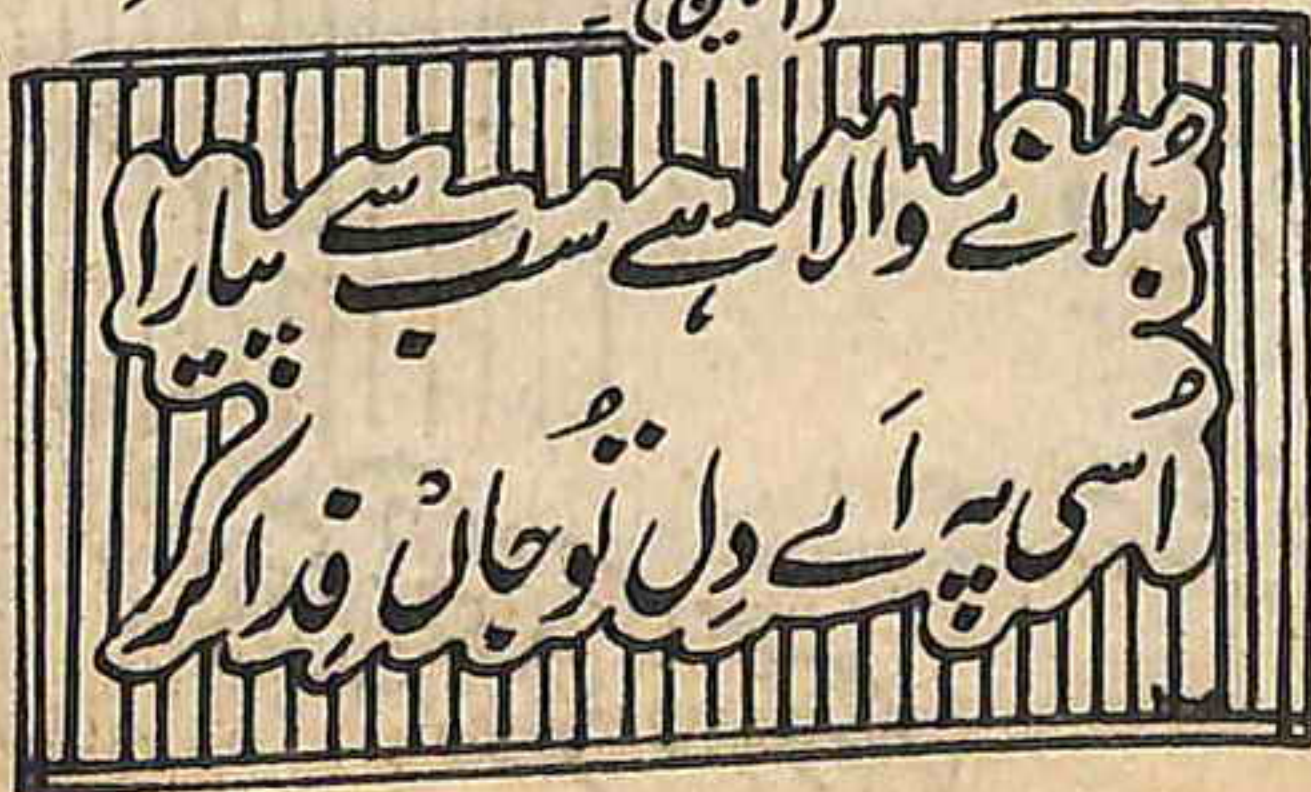 (آمین)
بُلانے والا ہے سب سے پیارا
اُسی پہ اَے دِل تُو جاں فِدا کر